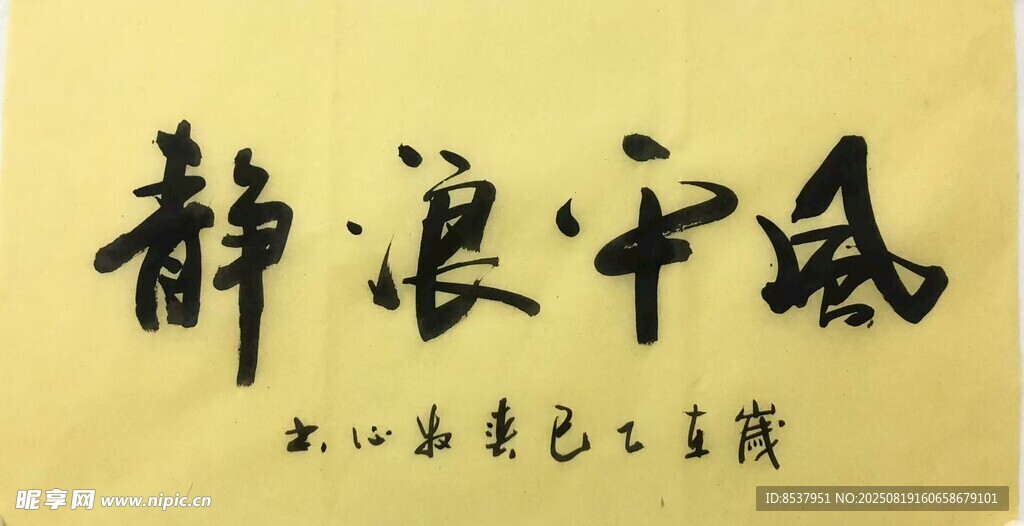 風平浪静
歲在乙巳 书
昵享网 www.nipic.cn
ID:8537951 NO:20250819160658679101